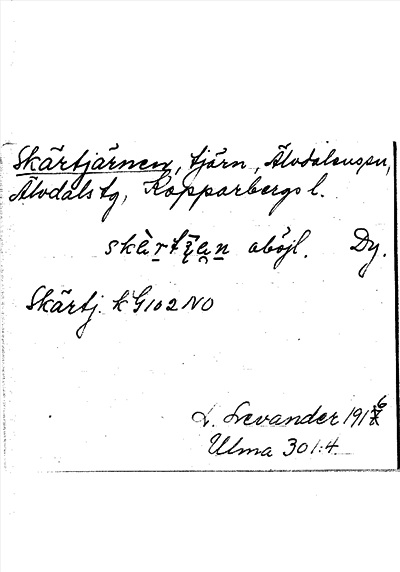 Skärtjärnen, tjärn, Älvdalens sn,
Älvdals tg, Kopparbergs l.
oböjl. Dy.
Skärtj. k G102 NO
L. Levander 1916
Ulma 301:4.